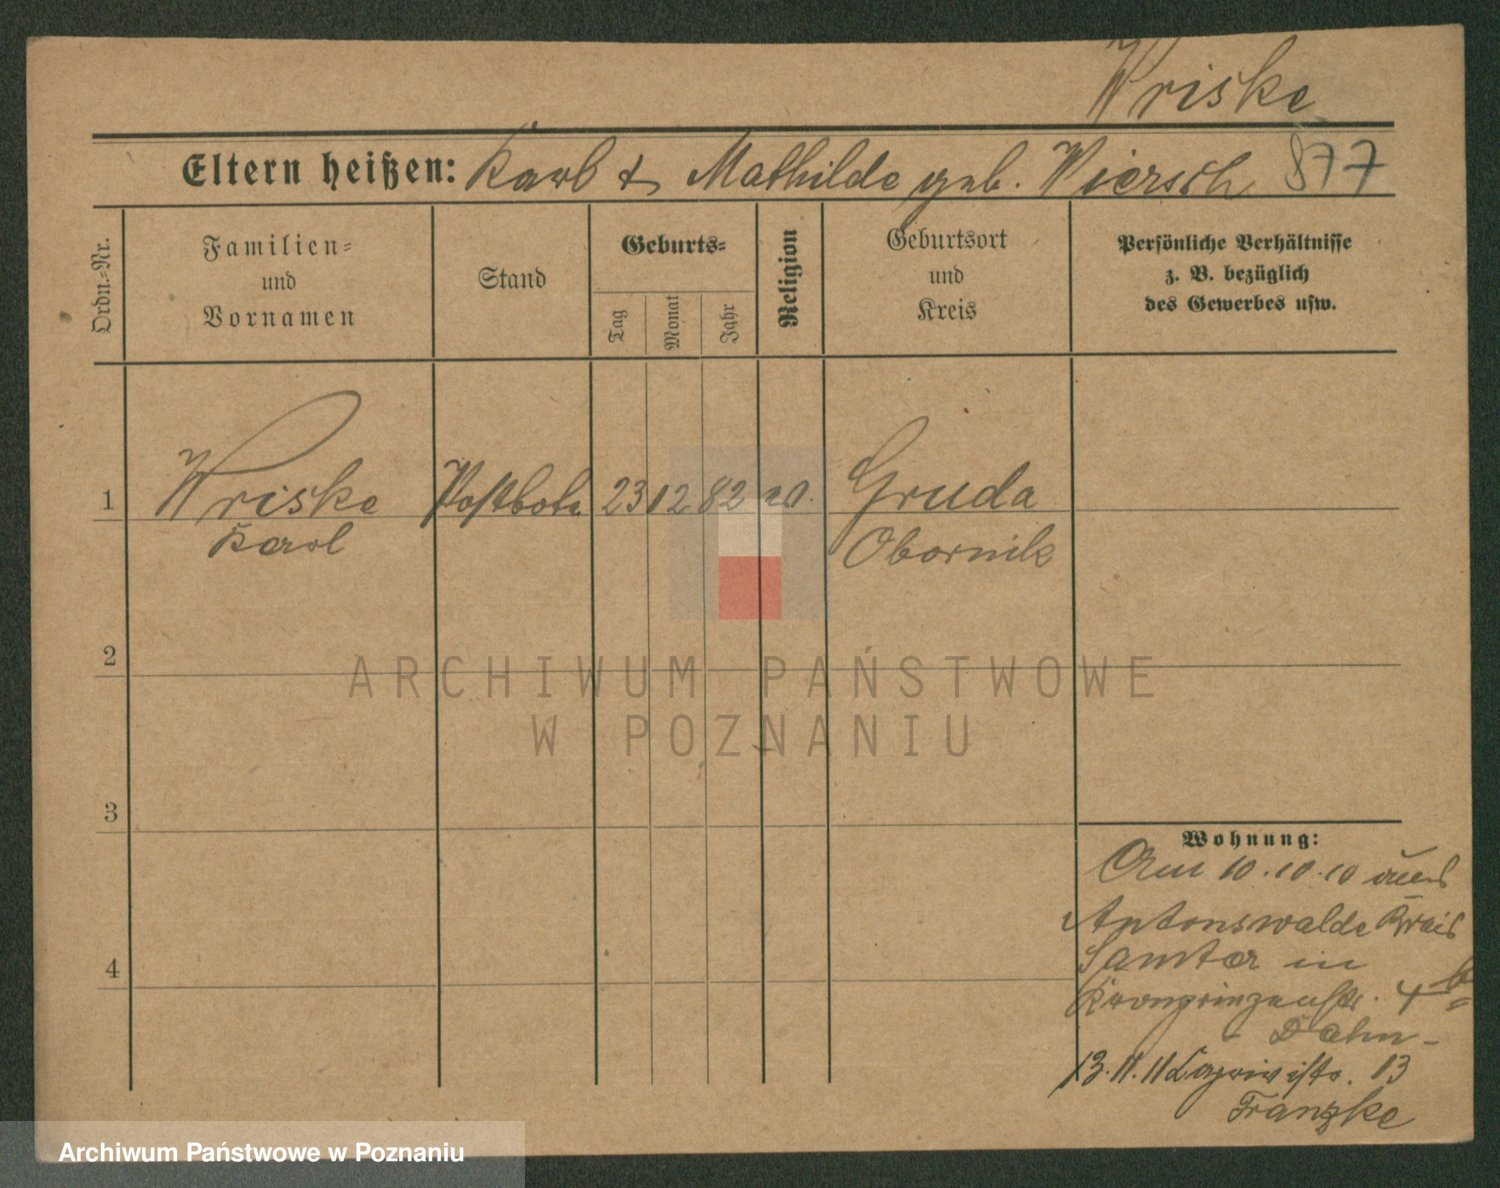 Wriske
Eltern heißen: Karl & Mathilde geb. Wiersch 877
Ordn.-Nr.
Familien-
und
Vornamen
Stand
Geburts-
Tag
Monat
Jahr
Religion
Geburtsort
und
Kreis
Persönliche Verhältnisse
z. B. bezüglich
des Gewerbes usw.
1 Wriske Postbote 23 12 82 ev. Gruda
Karl Obornik
2
3
4
Wohnung:
Am 10.10.10 aus
Antonswalde Kreis
Samter in
Kronprinzenstr. 4 b
Dahn
13.11.11 Caprivistr. 13
Franzke
ARCHIWUM PAŃSTWOWE
W POZNANIU
Archiwum Państwowe w Poznaniu